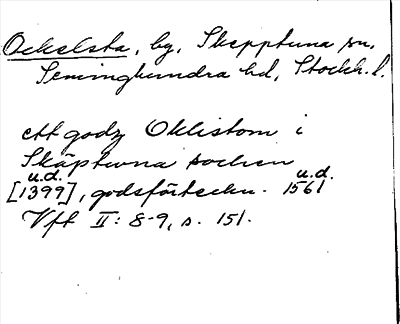 Ockelsta, by, Skepptuna sn,
Seminghundra hd, Stockh. l.
ett godz Oklistom i
Skäptuna sochen
u.d. u.d.
[1399], godsförteckn. 1561
Vft II: 8-9, s. 151.